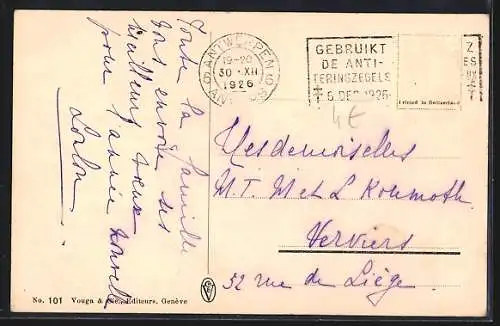 Toute la famille
vous envoie ses
meilleurs vœux
pour l'année nouvelle
Loulou
ANTWERPEN 6
19-20
30 XII
1926
ANVERS
GEBRUIKT
DE ANTI-
TERINGZEGELS
6 DEC 1926
Printed in Switzerland
4€
Mesdemoiselles
M. T. M et L
Verviers
52 rue de Liège.
No. 101 Vouga & Cie., Editeurs, Genève